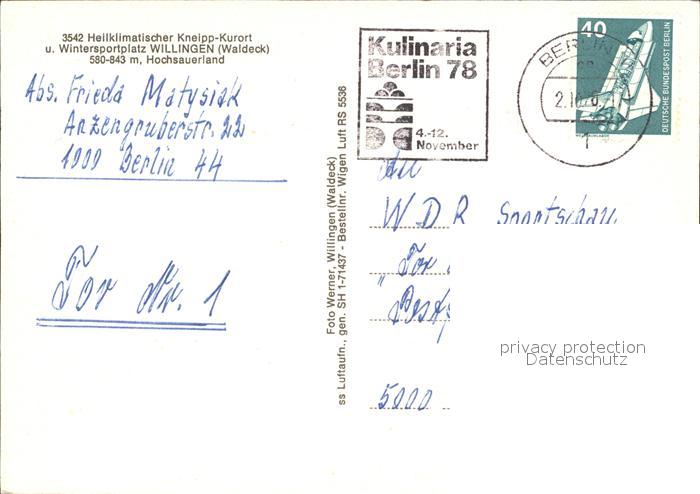 3542 Heilklimatischer Kneipp-Kurort
u. Wintersportplatz WILLINGEN (Waldeck)
580-843 m, Hochsauerland
Abs. Frieda Matysiak
Anzengruberstr. 22
1000 Berlin 44
Tor Nr. 1
Foto Werner, Willingen (Waldeck)
ss Luftaufn., gen. SH 1-71437 - Bestellnr. Wigen Luft RS 5536
Kulinaria
Berlin 78
4.-12.
November
BERLIN
40
DEUTSCHE BUNDESPOST BERLIN
An
WDR Sportschau
"Tor
Post
5000
privacy protection
Datenschutz